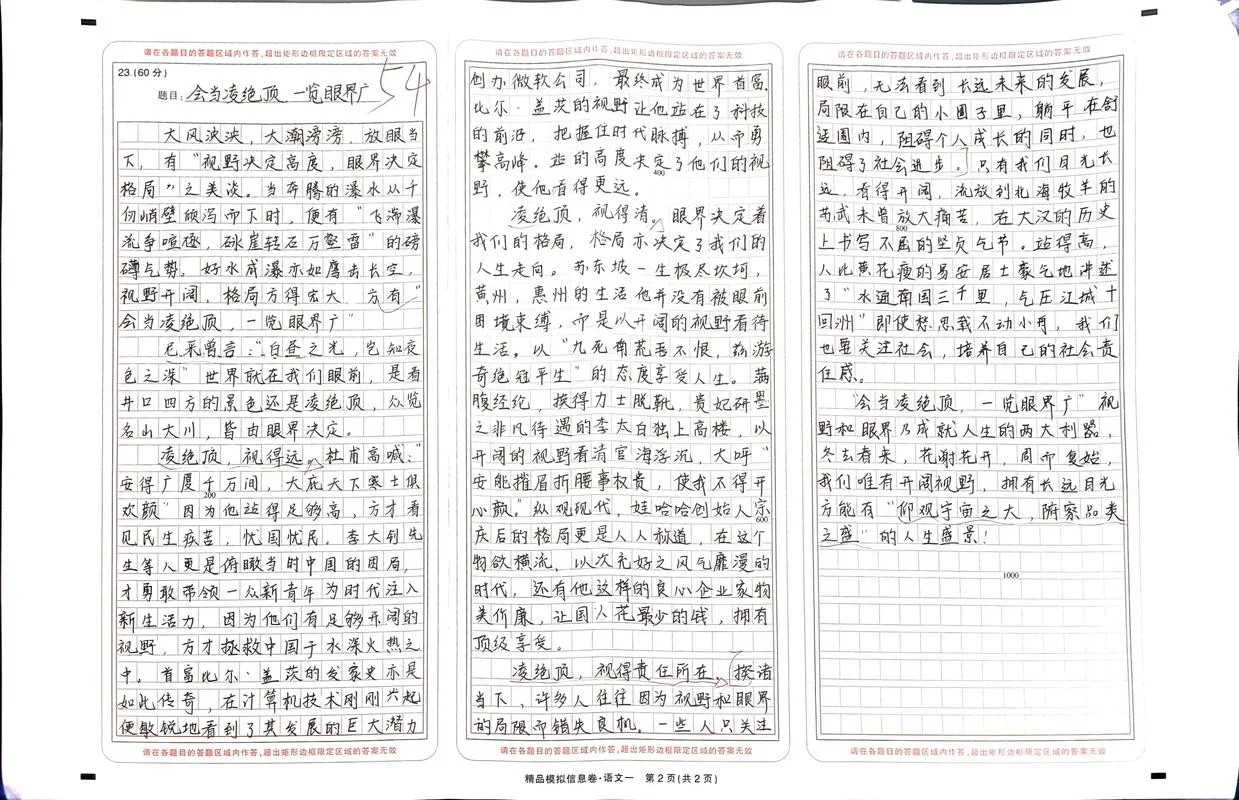 请在各题目的答题区域内作答,超出矩形边框限定区域的答案无效
23.(60分)
54
题目:会当凌绝顶 一览眼界广
大风泱泱,大潮滂滂.放眼当
下,有“视野决定高度,眼界决定
格局”之美谈。当奔腾的瀑水从千
仞峭壁倾泻而下时,便有“飞湍瀑
流争喧豗,砯崖转石万壑雷”的磅
礴气势。好水成瀑亦如鹰击长空,
视野开阔,格局方得宏大.方有“
会当凌绝顶,一览眼界广”
尼采曾言:“白昼之光,岂知夜
色之深”世界就在我们眼前,是看
井口四方的景色还是凌绝顶,众览
名山大川,皆由眼界决定。
凌绝顶,视得远。杜甫高喊:“
安得广厦千万间,大庇天下寒士俱
200
欢颜”因为他站得足够高,方才看
见民生疾苦,忧国忧民。李大钊先
生等人更是俯瞰当时中国的困局,
才勇敢带领一众新青年为时代注入
新生活力,因为他们有足够开阔的
视野,方才拯救中国于水深火热之
中。首富比尔·盖茨的发家史亦是
如此传奇,在计算机技术刚刚兴起
便敏锐地看到了其发展的巨大潜力
请在各题目的答题区域内作答,超出矩形边框限定区域的答案无效
请在各题目的答题区域内作答,超出矩形边框限定区域的答案无效
创办微软公司,最终成为世界首富.
比尔·盖茨的视野让他站在了科技
的前沿,把握住时代脉搏,从而勇
攀高峰。站的高度决定了他们的视
400
野,使他看得更远。
凌绝顶,视得清。眼界决定着
我们的格局,格局亦决定了我们的
人生走向。苏东坡一生极尽坎坷,
黄州,惠州的生活他并没有被眼前
困境束缚,而是以开阔的视野看待
生活。以“九死南荒吾不恨,兹游
奇绝冠平生”的态度享受人生。满
腹经纶,换得力士脱靴,贵妃研墨
之非凡待遇的李太白独上高楼,以
开阔的视野看清官海浮沉,大呼“
安能摧眉折腰事权贵,使我不得开
心颜”。纵观现代,娃哈哈创始人宗
600
庆后的格局更是人人称道,在这个
物欲横流,以次充好之风气靡漫的
时代,还有他这样的良心企业家物
美价廉,让国人花最少的钱,拥有
顶级享受。
凌绝顶,视得责任所在。探诸
当下,许多人往往因为视野和眼界
的局限而错失良机。一些人只关注
请在各题目的答题区域内作答,超出矩形边框限定区域的答案无效
请在各题目的答题区域内作答,超出矩形边框限定区域的答案无效
眼前,无法看到长远未来的发展,
局限在自己的小圈子里,躺平在舒
适圈内,阻碍个人成长的同时,也
阻碍了社会进步。只有我们目光长
远,看得开阔,流放到北海牧羊的
苏武未曾放大痛苦,在大汉的历史
800
上书写不屈的坚贞气节。站得高,
人比黄花瘦的易安居士豪气地讲述
了“水通南国三千里,气压江城十
四洲”即使愁思载不动小舟,我们
也要关注社会,培养自己的社会责
任感。
“会当凌绝顶,一览眼界广”视
野和眼界乃成就人生的两大利器,
冬去春来,花谢花开,周而复始,
我们唯有开阔视野,拥有长远目光
方能有“仰观宇宙之大,俯察品类
之盛”的人生盛景!
1000
请在各题目的答题区域内作答,超出矩形边框限定区域的答案无效
精品模拟信息卷·语文一 第2页(共2页)